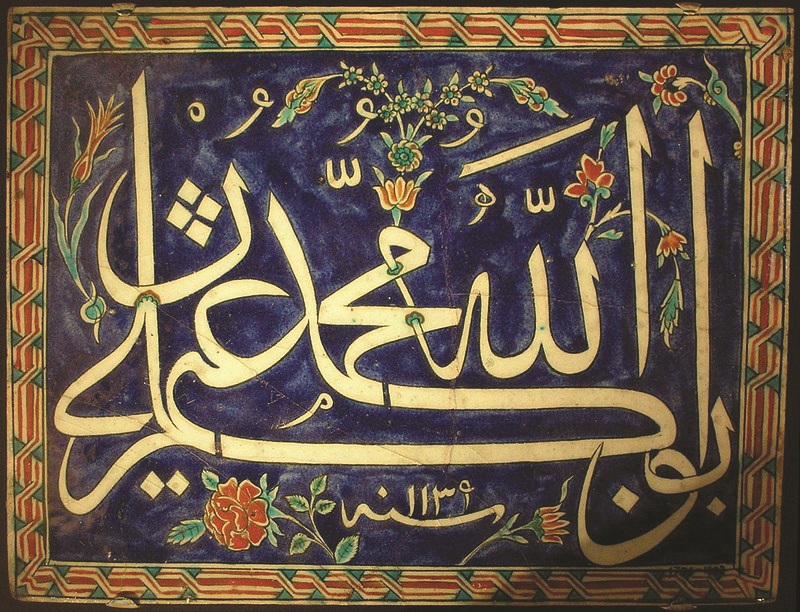 الله محمد
ابوبكر عمر عثمان علي
سنه ١١٣٩